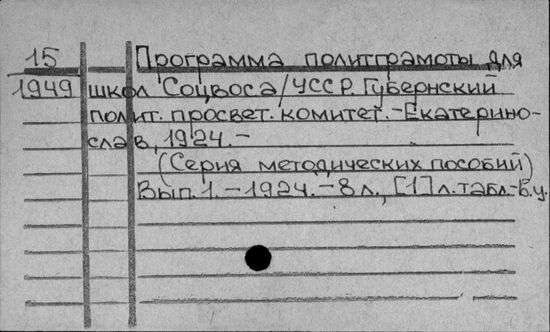 15 Программа политграмоты для
1949 школ Соцвоса/УССР. Губернский
полит. просвет. комитет.-Екатерино-
слав, 1924.-
(Серия методических пособий)
Вып. 1.-1924.-8 л., [1] л. табл.-Б.ц.